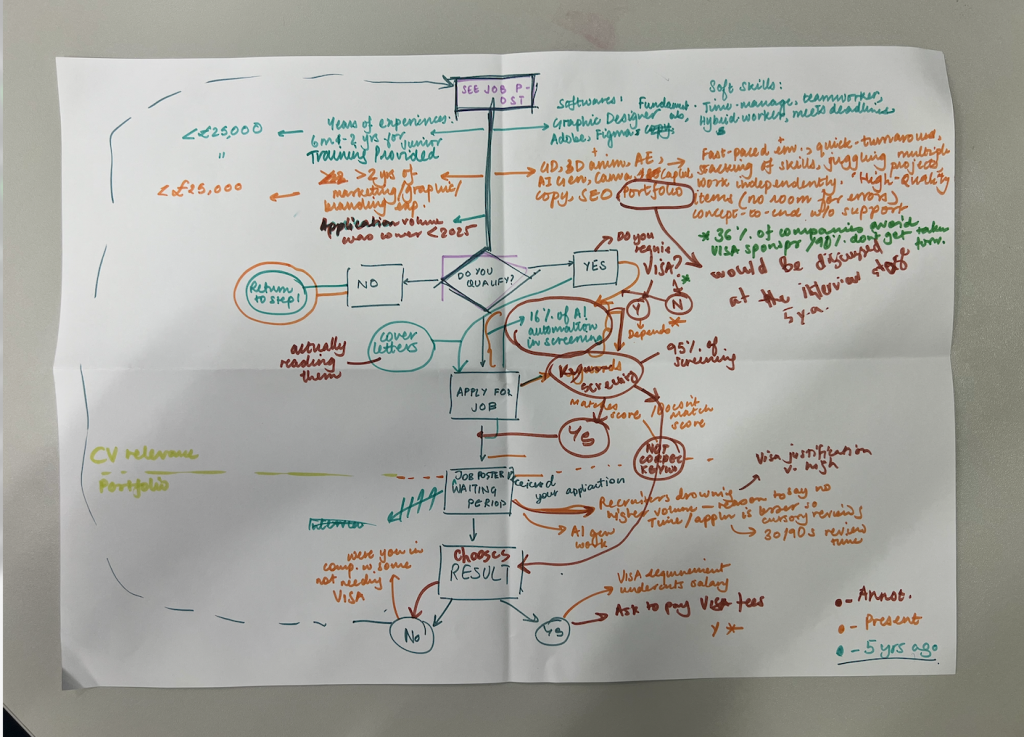 SEE JOB P-
OST
<£25,000
Years of experiences:
6m-1-2 yrs for
junior
Training Provided
Softwares: Fundament.
Graphic Designer
Adobe, Figma
Soft skills:
Time-manage, teamworker,
Hybrid worker, meets deadlines
"
<£25,000
>2 yrs of
marketing/graphic/
branding exp.
+
GD, 3D anim, AE,
AI gen, Canva,
copy, SEO Portfolio
Fast-paced env., quick-turnaround,
stacking of skills, juggling multiple
projects
work independently. "High-Quality
items (no room for errors)
concept-to-end w/o support
Application volume
was lower <2025
* 36% of companies avoid
VISA sponsor/90% don't get taken
turn.
would be discussed
at the interview stage
5 y.a.
DO YOU
QUALIFY?
YES
NO
Return
to step 1
Do you
require
VISA?
Y
N
*
Depends *
16% of AI
automation
in screening
cover
letters
actually
reading
them
APPLY FOR
JOB
Keywords
screening
95% of
screening
Matches
score
/Doesn't
match
score
Yes
NOT
CORRECT
KEYWD
CV relevance
Portfolio
JOB POSTER
WAITING
PERIOD
received
your application
Interview
Visa justification
v. high
Recruiters drowning
higher volume — reason to say no
Time/appln is lower so
cursory reviews
30/90s review
time
AI gen
work
chooses
RESULT
were you in
comp. w. some
not needing
VISA
No
Yes
VISA requirement
undercuts salary
Ask to pay Visa fees
Y *
- Annot.
- Present
- 5 yrs ago